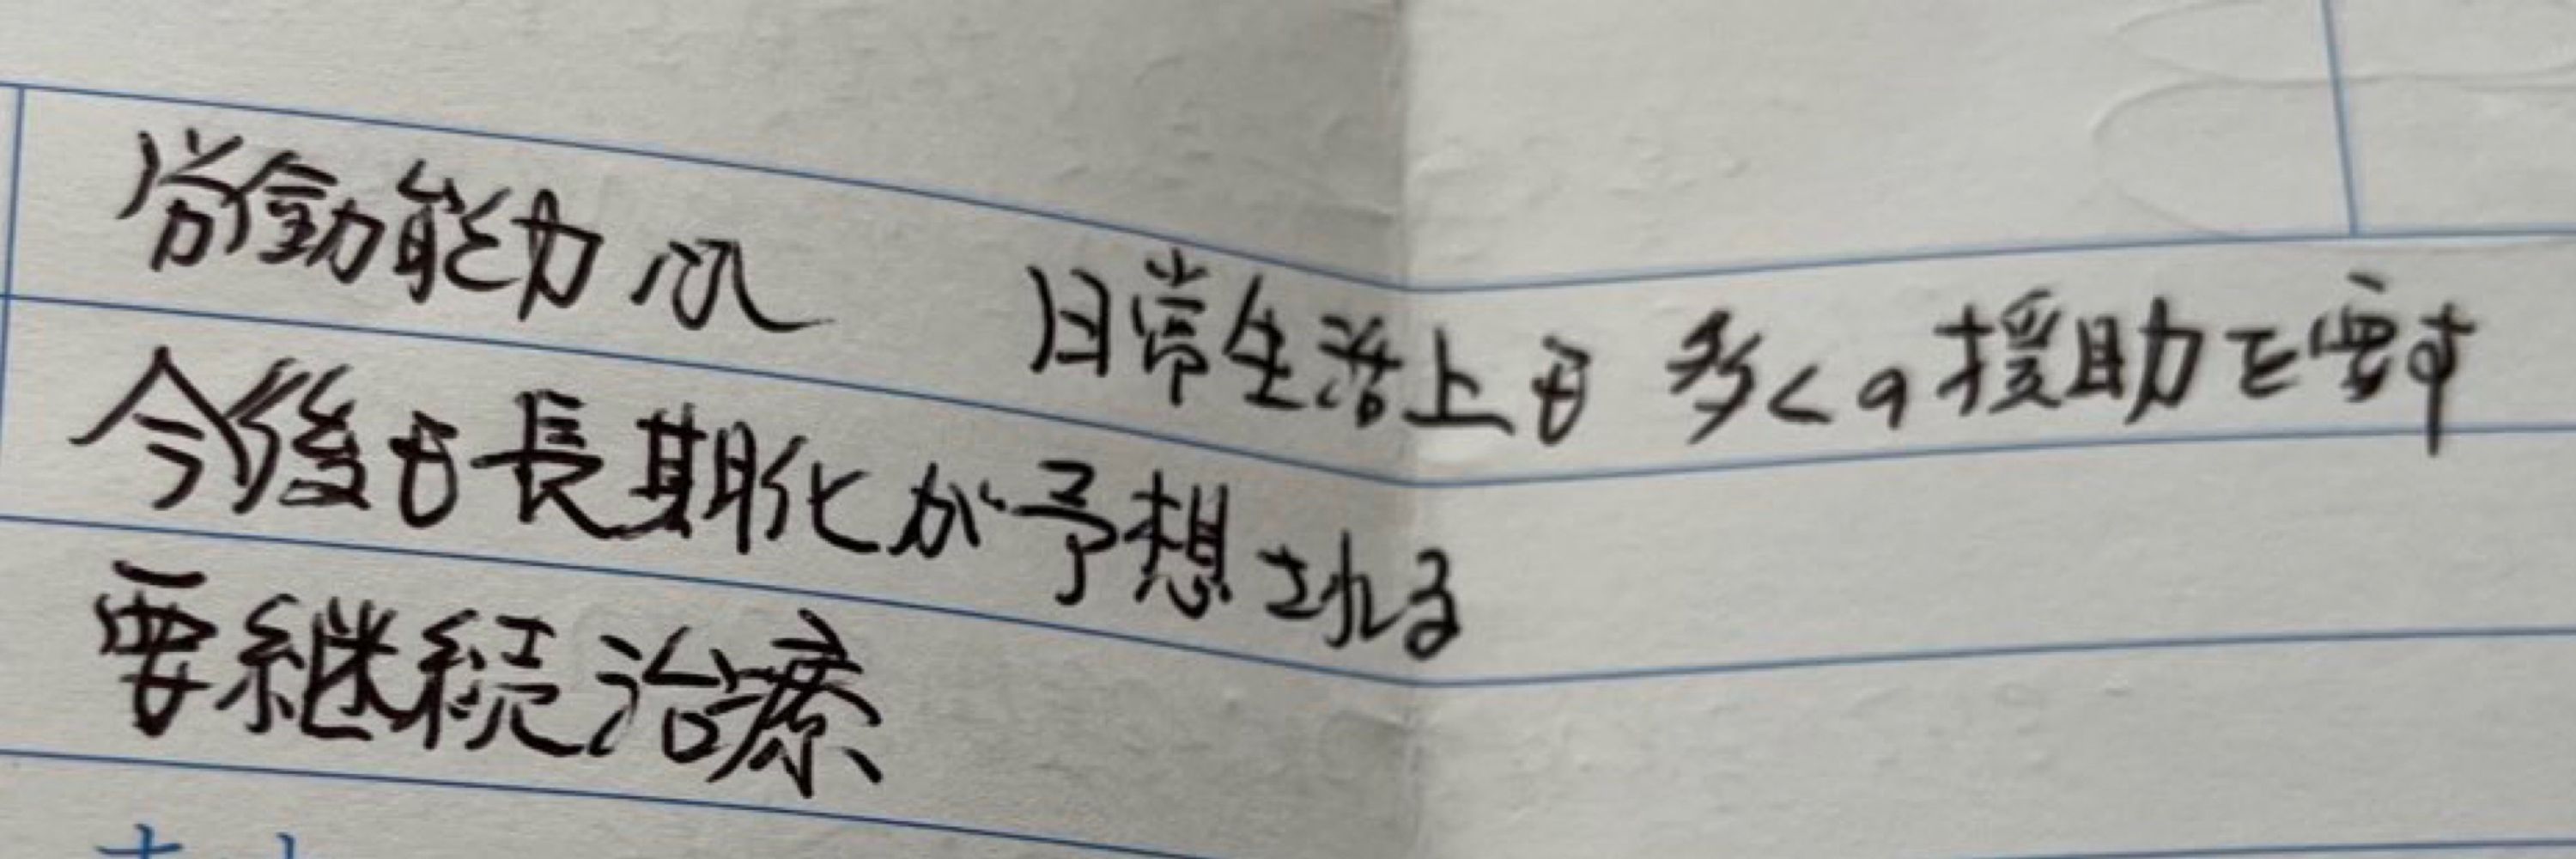 労働能力なし 日常生活上も多くの援助を要す
今後も長期化が予想される
要継続治療